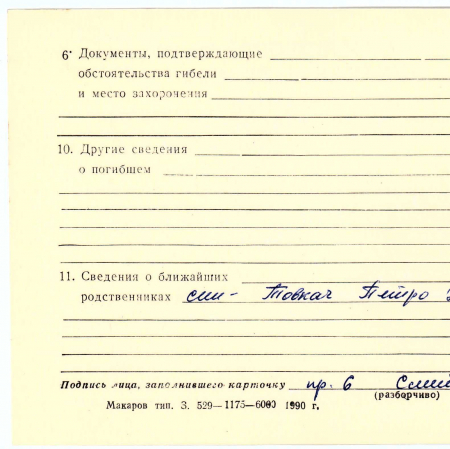 6. Документы, подтверждающие
обстоятельства гибели
и место захоронения
10. Другие сведения
о погибшем
11. Сведения о ближайших
родственниках син- Товкач Петро
Подпись лица, заполнившего карточку пр. 6
(разборчиво)
Макаров тип. З. 529—1175—6000 1990 г.